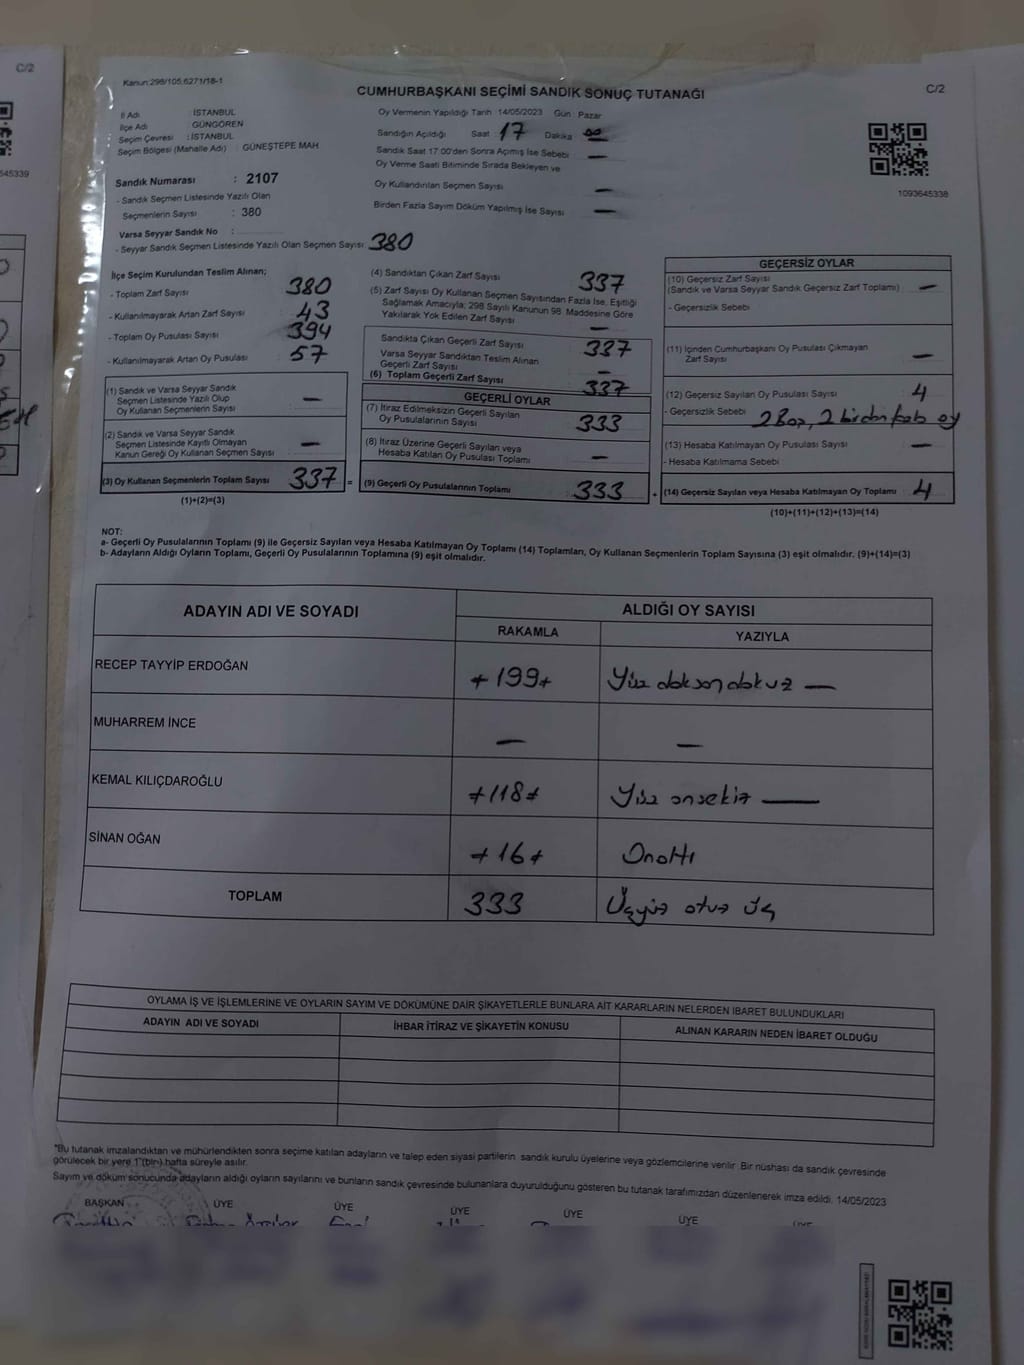 C/2
645339
Kanun:298/105,6271/18-1
CUMHURBAŞKANI SEÇİMİ SANDIK SONUÇ TUTANAĞI
C/2
İl Adı : İSTANBUL
İlçe Adı : GÜNGÖREN
Seçim Çevresi : İSTANBUL
Seçim Bölgesi (Mahalle Adı) : GÜNEŞTEPE MAH
Oy Vermenin Yapıldığı Tarih 14/05/2023 Gün Pazar
Sandığın Açıldığı Saat 17 Dakika 00
Sandık Saat 17.00'den Sonra Açılmış İse Sebebi —
Oy Verme Saati Bitiminde Sırada Bekleyen ve
Oy Kullandırılan Seçmen Sayısı —
Birden Fazla Sayım Döküm Yapılmış İse Sayısı —
1093645338
Sandık Numarası : 2107
- Sandık Seçmen Listesinde Yazılı Olan
Seçmenlerin Sayısı : 380
Varsa Seyyar Sandık No :
- Seyyar Sandık Seçmen Listesinde Yazılı Olan Seçmen Sayısı : 380
İlçe Seçim Kurulundan Teslim Alınan;
- Toplam Zarf Sayısı 380
- Kullanılmayarak Artan Zarf Sayısı 43
- Toplam Oy Pusulası Sayısı 394
- Kullanılmayarak Artan Oy Pusulası 57
(1) Sandık ve Varsa Seyyar Sandık
Seçmen Listesinde Yazılı Olup
Oy Kullanan Seçmenlerin Sayısı —
(2) Sandık ve Varsa Seyyar Sandık
Seçmen Listesinde Kayıtlı Olmayan
Kanun Gereği Oy Kullanan Seçmen Sayısı —
(3) Oy Kullanan Seçmenlerin Toplam Sayısı 337 =
(1)+(2)=(3)
(4) Sandıktan Çıkan Zarf Sayısı 337
(5) Zarf Sayısı Oy Kullanan Seçmen Sayısından Fazla İse, Eşitliği
Sağlamak Amacıyla; 298 Sayılı Kanunun 98. Maddesine Göre
Yakılarak Yok Edilen Zarf Sayısı —
Sandıkta Çıkan Geçerli Zarf Sayısı 337
Varsa Seyyar Sandıktan Teslim Alınan
Geçerli Zarf Sayısı —
(6) Toplam Geçerli Zarf Sayısı 337
GEÇERLİ OYLAR
(7) İtiraz Edilmeksizin Geçerli Sayılan
Oy Pusulasının Sayısı 333
(8) İtiraz Üzerine Geçerli Sayılan veya
Hesaba Katılan Oy Pusulası Toplamı —
(9) Geçerli Oy Pusulalarının Toplamı 333 +
GEÇERSİZ OYLAR
(10) Geçersiz Zarf Sayısı
(Sandık ve Varsa Seyyar Sandık Geçersiz Zarf Toplamı) —
- Geçersizlik Sebebi
(11) İçinden Cumhurbaşkanı Oy Pusulası Çıkmayan
Zarf Sayısı —
(12) Geçersiz Sayılan Oy Pusulası Sayısı 4
- Geçersizlik Sebebi 2 Boş, 2 birden fazla oy
(13) Hesaba Katılmayan Oy Pusulası Sayısı —
- Hesaba Katılmama Sebebi
(14) Geçersiz Sayılan veya Hesaba Katılmayan Oy Toplamı 4
(10)+(11)+(12)+(13)=(14)
NOT:
a- Geçerli Oy Pusulalarının Toplamı (9) ile Geçersiz Sayılan veya Hesaba Katılmayan Oy Toplamı (14) Toplamları, Oy Kullanan Seçmenlerin Toplam Sayısına (3) eşit olmalıdır. (9)+(14)=(3)
b- Adayların Aldığı Oyların Toplamı, Geçerli Oy Pusulalarının Toplamına (9) eşit olmalıdır.
ADAYIN ADI VE SOYADI ALDIĞI OY SAYISI
RAKAMLA YAZIYLA
RECEP TAYYİP ERDOĞAN +199+ Yüz doksan dokuz —
MUHARREM İNCE — —
KEMAL KILIÇDAROĞLU +118+ Yüz onsekiz —
SİNAN OĞAN +16+ Onaltı
TOPLAM 333 Üçyüz otuz üç
OYLAMA İŞ VE İŞLEMLERİNE VE OYLARIN SAYIM VE DÖKÜMÜNE DAİR ŞİKAYETLERLE BUNLARA AİT KARARLARIN NELERDEN İBARET BULUNDUKLARI
ADAYIN ADI VE SOYADI İHBAR İTİRAZ VE ŞİKAYETİN KONUSU ALINAN KARARIN NEDEN İBARET OLDUĞU
*Bu tutanak imzalandıktan ve mühürlendikten sonra seçime katılan adayların ve talep eden siyasi partilerin sandık kurulu üyelerine veya gözlemcilerine verilir. Bir nüshası da sandık çevresinde
görülecek bir yere 1 (bir) hafta süreyle asılır.
Sayım ve döküm sonucunda adayların aldığı oyların sayılarını ve bunların sandık çevresinde bulunanlara duyurulduğunu gösteren bu tutanak tarafımızdan düzenlenerek imza edildi. 14/05/2023
BAŞKAN ÜYE ÜYE ÜYE ÜYE ÜYE ÜYE